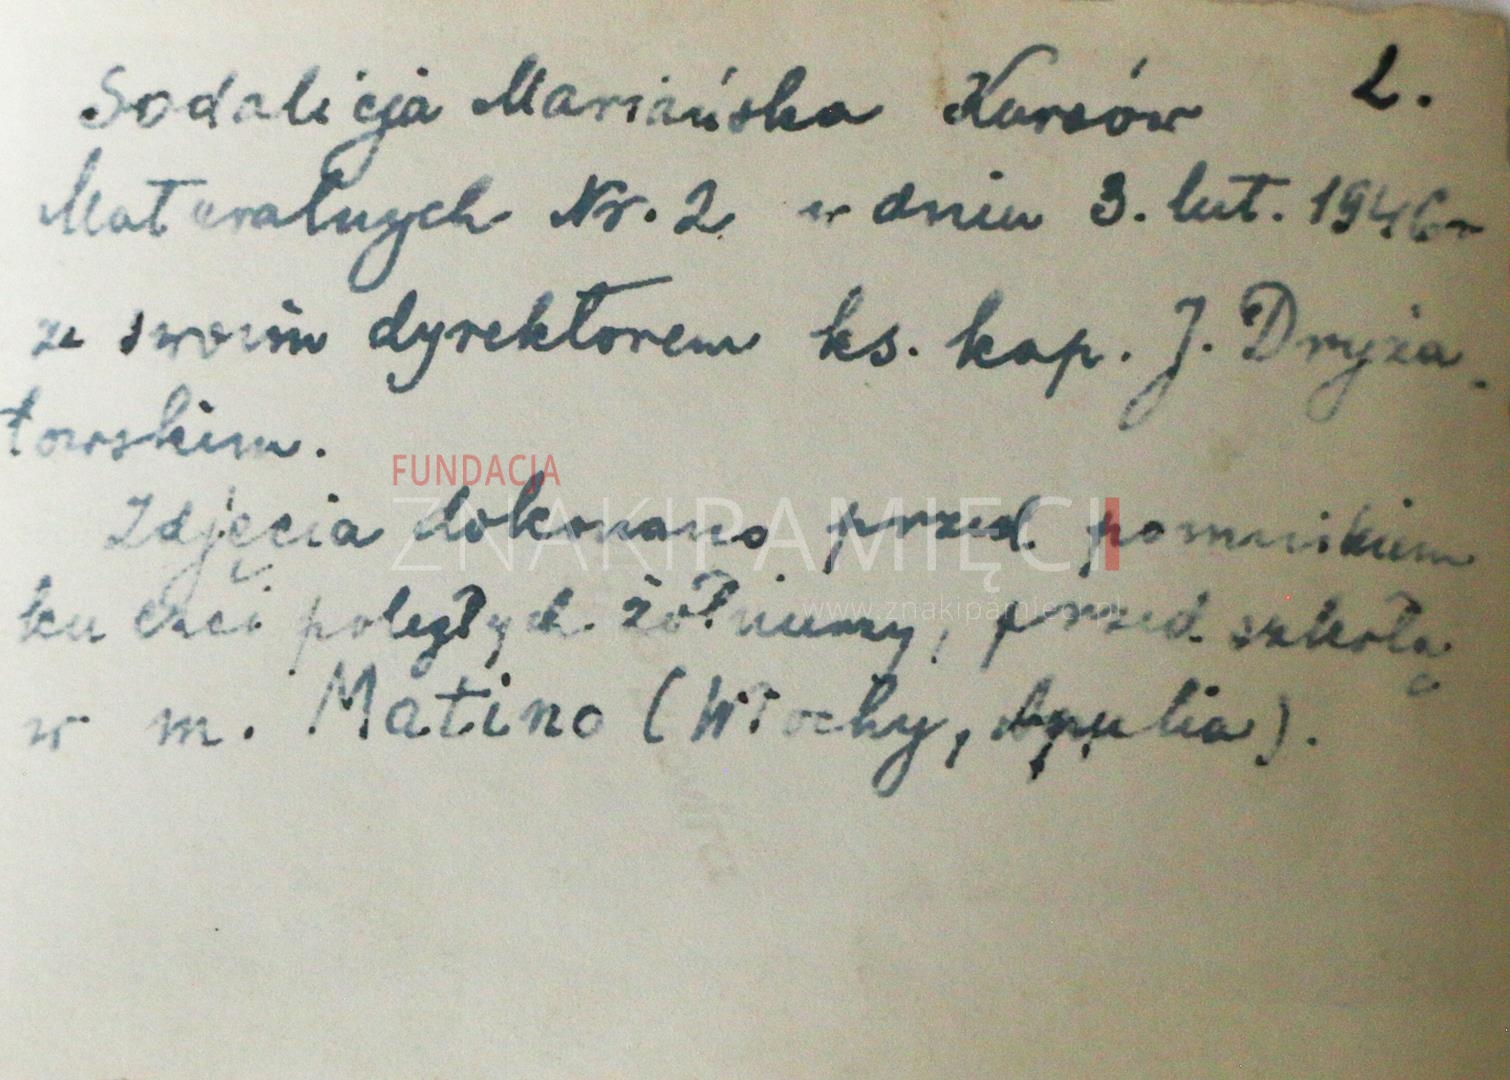 2.
Sodalicja Mariańska Kursów
Maturalnych Nr. 2 w dniu 3. lut. 1946 r
ze swoim dyrektorem ks. kap. J. Dryża-
łowskim.
FUNDACJA
ZNAKIPAMIĘCI
Zdjęcia dokonano przed pomnikiem
www.znakipamieci.pl
ku czci poległych żołnierzy, przed szkołą
w m. Matino (Włochy, Apulia).